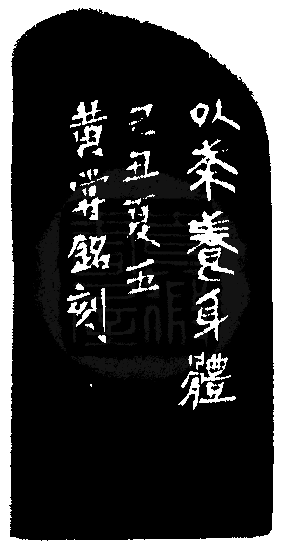 以茶養身體
己丑夏五
黄嘗銘刻